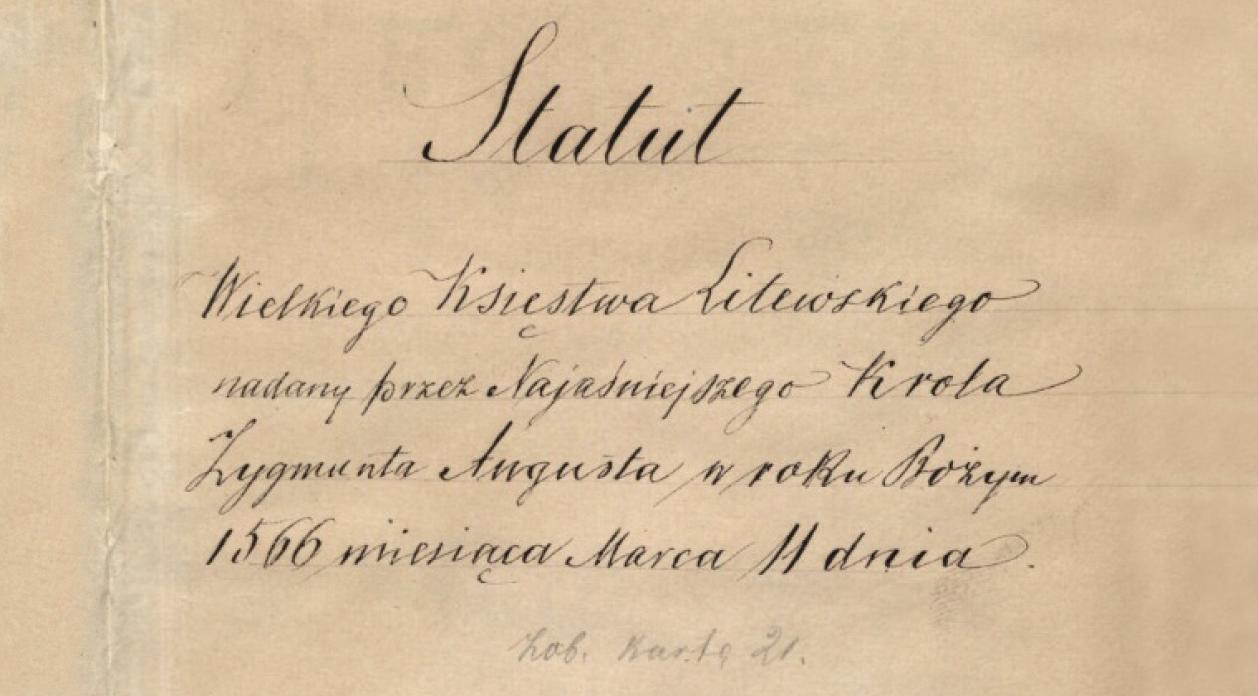 Statut
Wielkiego Księstwa Litewskiego
nadany przez Najaśniejszego Krola
Zygmunta Augusta w roku Bożym
1566 miesiąca Marca 11 dnia.
Zob. Kartę 21.